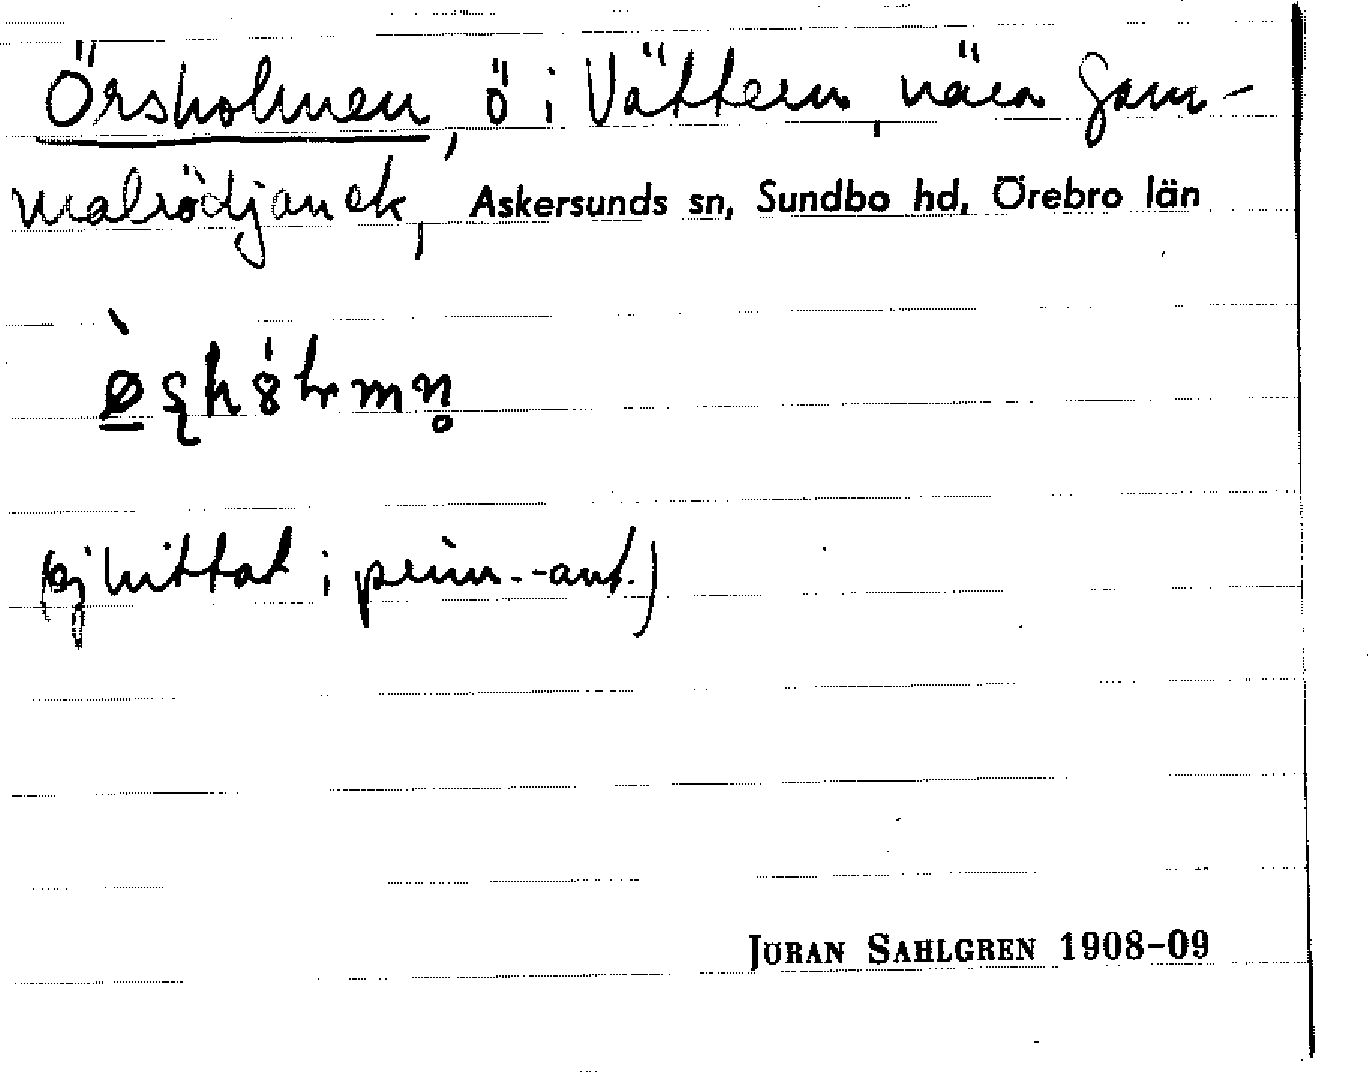 Örsholmen, ö i Vättern, nära Gam-
malrödjan ek, Askersunds sn, Sundbo hd, Örebro län
(ej hittat i prim.-ant.)
JÖRAN SAHLGREN 1908-09